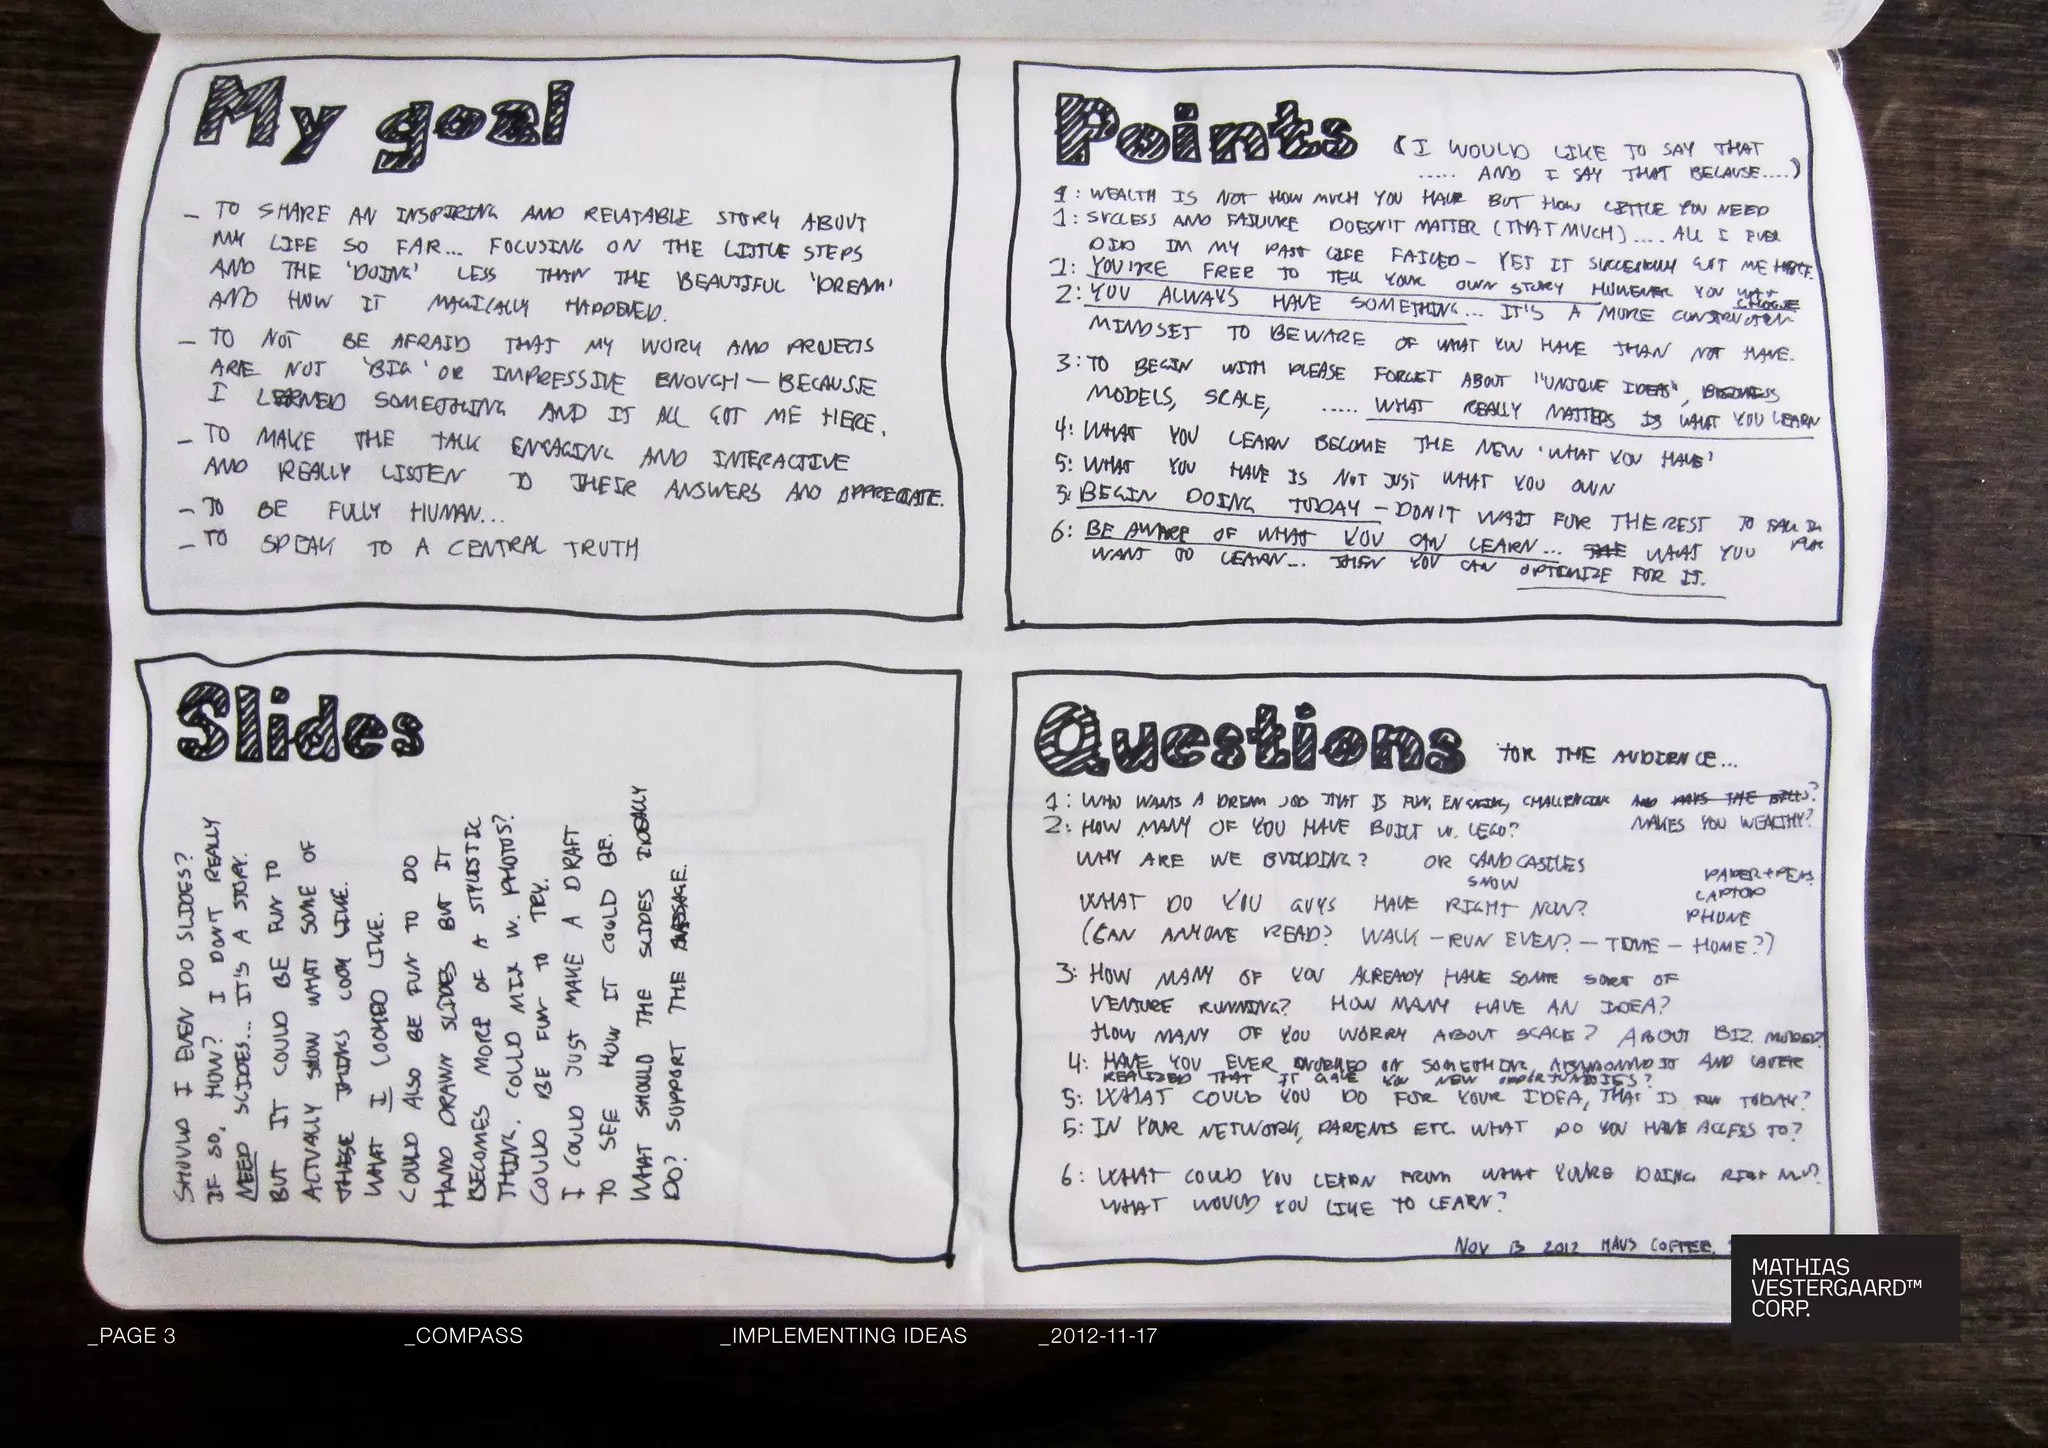 My goal
– TO SHARE AN INSPIRING AND RELATABLE STORY ABOUT
MY LIFE SO FAR... FOCUSING ON THE LITTLE STEPS
AND THE 'DOING' LESS THAN THE BEAUTIFUL 'DREAM'
AND HOW IT MAGICALLY HAPPENED.
– TO NOT BE AFRAID THAT MY WORK AND PROJECTS
ARE NOT 'BIG' OR IMPRESSIVE ENOUGH – BECAUSE
I LEARNED SOMETHING AND IT ALL GOT ME HERE.
– TO MAKE THE TALK ENGAGING AND INTERACTIVE
AND REALLY LISTEN TO THEIR ANSWERS AND APPRECIATE.
– TO BE FULLY HUMAN...
– TO SPEAK TO A CENTRAL TRUTH
Points (I WOULD LIKE TO SAY THAT
..... AND I SAY THAT BECAUSE....)
1: WEALTH IS NOT HOW MUCH YOU HAVE BUT HOW LITTLE YOU NEED
1: SUCCESS AND FAILURE DOESN'T MATTER (THAT MUCH).... ALL I EVER
DID IN MY PAST LIFE FAILED – YET IT SUCCESSFULLY GOT ME HERE.
1: YOU'RE FREE TO TELL YOUR OWN STORY HOWEVER YOU
CHOOSE
2: YOU ALWAYS HAVE SOMETHING... IT'S A MORE CONSTRUCTIVE
MINDSET TO BEWARE OF WHAT YOU HAVE THAN NOT HAVE.
3: TO BEGIN WITH PLEASE FORGET ABOUT "UNIQUE IDEAS", BUSINESS
MODELS, SCALE, ..... WHAT REALLY MATTERS IS WHAT YOU LEARN
4: WHAT YOU LEARN BECOME THE NEW 'WHAT YOU HAVE'
5: WHAT YOU HAVE IS NOT JUST WHAT YOU OWN
5: BEGIN DOING TODAY – DON'T WAIT FOR THE REST TO FALL IN
PLACE
6: BE AWARE OF WHAT YOU CAN LEARN... THE WHAT YOU
WANT TO LEARN... THEN YOU CAN OPTIMIZE FOR IT.
Slides
SHOULD I EVEN DO SLIDES?
IF SO, HOW? I DON'T REALLY
NEED SLIDES... IT'S A STORY.
BUT IT COULD BE FUN TO
ACTUALLY SHOW WHAT SOME OF
THESE THINGS LOOK LIKE.
WHAT I LOOKED LIKE.
COULD ALSO BE FUN TO DO
HAND DRAWN SLIDES BUT IT
BECOMES MORE OF A STYLISTIC
THING. COULD MIX W. PHOTOS?
COULD BE FUN TO TRY.
I COULD JUST MAKE A DRAFT
TO SEE HOW IT COULD BE.
WHAT SHOULD THE SLIDES IDEALLY
DO? SUPPORT THE MESSAGE.
Questions FOR THE AUDIENCE...
1: WHO WANTS A DREAM JOB THAT IS FUN, ENGAGING, CHALLENGING AND PAYS THE BILLS?
MAKES YOU WEALTHY?
2: HOW MANY OF YOU HAVE BUILT W. LEGO?
WHY ARE WE BUILDING? OR SANDCASTLES
SNOW
PAPER + PEN?
LAPTOP
PHONE
WHAT DO YOU GUYS HAVE RIGHT NOW?
(CAN ANYONE READ? WALK – RUN EVEN? – TIME – HOME?)
3: HOW MANY OF YOU ALREADY HAVE SOME SORT OF
VENTURE RUNNING? HOW MANY HAVE AN IDEA?
HOW MANY OF YOU WORRY ABOUT SCALE? ABOUT BIZ. MODEL?
4: HAVE YOU EVER WORKED ON SOMETHING, ABANDONED IT AND LATER
REALIZED THAT IT GAVE YOU NEW OPPORTUNITIES?
5: WHAT COULD YOU DO FOR YOUR IDEA, THAT IS FUN TODAY?
5: IN YOUR NETWORK, PARENTS ETC. WHAT DO YOU HAVE ACCESS TO?
6: WHAT COULD YOU LEARN FROM WHAT YOU'RE DOING RIGHT NOW?
WHAT WOULD YOU LIKE TO LEARN?
NOV 13 2012 COFFEE,
MATHIAS
VESTERGAARD™
CORP.
_PAGE 3 _COMPASS _IMPLEMENTING IDEAS _2012-11-17